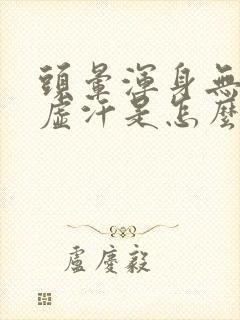 頭暈渾身無
虛汗是怎麼
盧慶毅